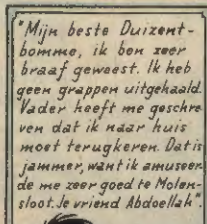 "Mijn beste Duizent-
bomme, ik ben zeer
braaf geweest. Ik heb
geen grappen uitgehaald.
Vader heeft me geschre
ven dat ik naar huis
moet terugkeren. Dat is
jammer, want ik amuseer-
de me zeer goed te Molen-
sloot. Je vriend Abdoellah".